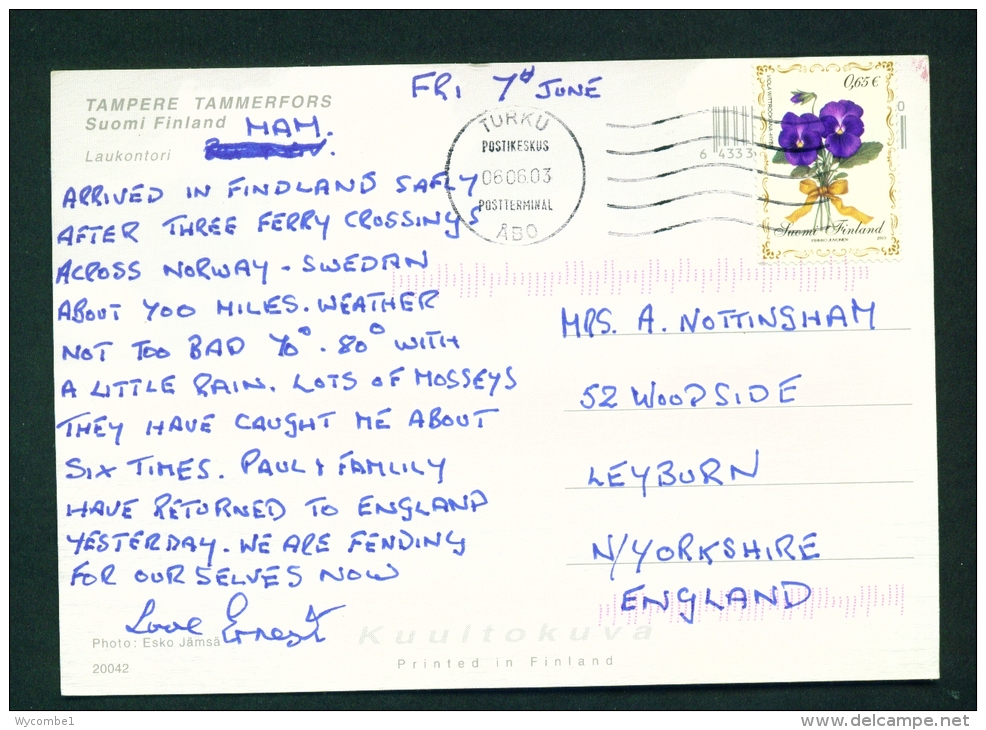 FRI 7th JUNE
TAMPERE TAMMERFORS
Suomi Finland
Laukontori
MAM.
ARRIVED IN FINDLAND SAFLY
AFTER THREE FERRY CROSSINGS
ACROSS NORWAY - SWEDAN
ABOUT 700 MILES. WEATHER
NOT TOO BAD 70° - 80° WITH
A LITTLE RAIN. LOTS OF MOSSEYS
THEY HAVE CAUGHT ME ABOUT
SIX TIMES. PAUL & FAMLILY
HAVE RETURNED TO ENGLAND
YESTERDAY. WE ARE FENDING
FOR OURSELVES NOW
Love Ernest
Photo: Esko Jämsä
20042
TURKU
POSTIKESKUS
06.06.03
POSTTERMINAL
ÅBO
6 4333
0
0,65 €
Suomi Finland
MRS. A. NOTTINGHAM
52 WOODSIDE
LEYBURN
N/YORKSHIRE
ENGLAND
Kuultokuva
Printed in Finland
Wycombe1
www.delcampe.net